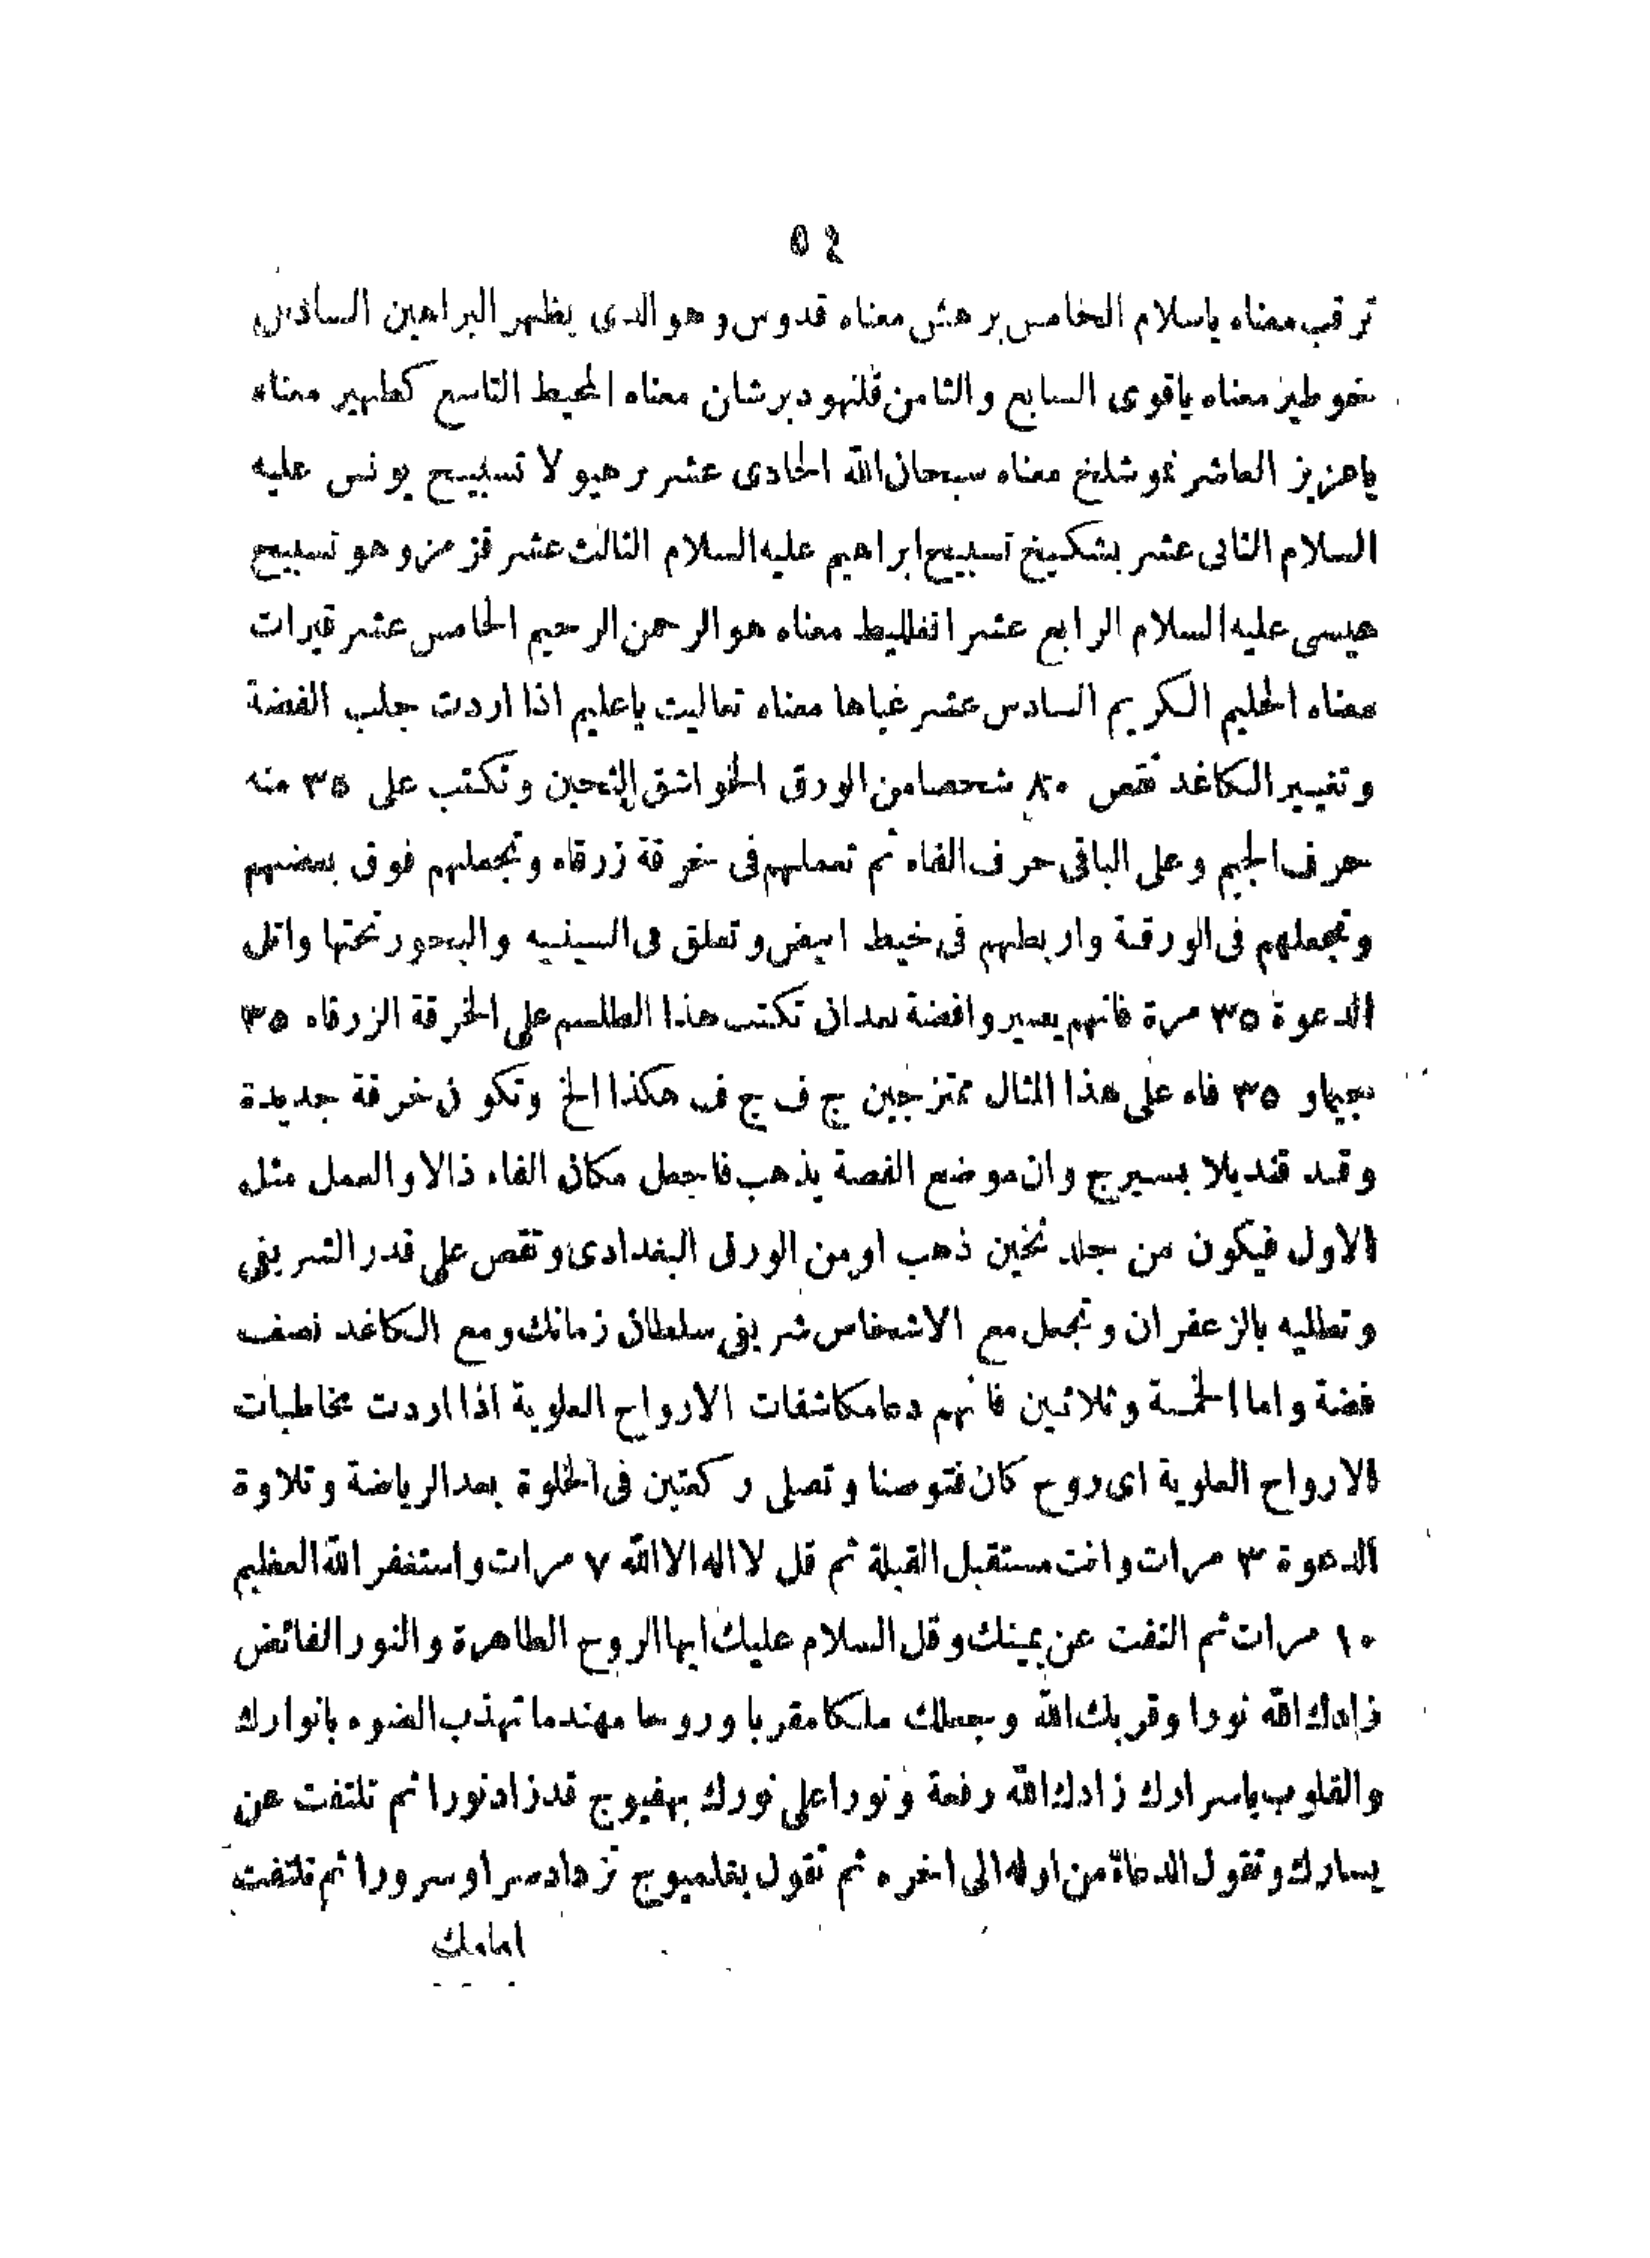 ٥٤
ترقب معناه ياسلام الخامس برهش معناه قدوس وهو الدى يظهر البراهين السادس
خوطير معناه ياقوى السابع والثامن قلنهود برشان معناه المحيط التاسع كظهير معناه
ياعزيز العاشر نموشلخ معناه سبحان الله الحادى عشر برهيولا تسبيح يونس عليه
السلام الثانى عشر بشكيلخ تسبيح ابراهيم عليه السلام الثالث عشر قزمز وهو تسبيح
عيسى عليه السلام الرابع عشر انغلليط معناه هو الرحمن الرحيم الخامس عشر قبرات
معناه الحليم الكريم السادس عشر غياها معناه تعاليت ياعليم اذا اردت جلب الفضة
وتغيير الكاغد تقص ٨٠ شخصا من الورق الخواشق الثخين وتكتب على ٣٥ منه
حرف الجيم وعلى الباقى حرف الفاء ثم تعملهم فى خرقة زرقاء وتجعلهم فوق بعضهم
وتجعلهم فى الورقة واربطهم فى خيط ابيض وتعلق فى السيبيه والبخور تحتها واتلى
الدعوة ٣٥ مرة فانهم يصيروا فضة بعد ان تكتب هذا الطلسم على الخرقة الزرقاء ٣٥
جيما و ٣٥ فاء على هذا المثال ممتزجين ج ف ج ف هكذا الخ وتكون خرقة جديدة
وقد قنديلا بسيرج وان موضع الفضة يذهب فاجعل مكان الفاء ذالا والعمل مثل
الاول فيكون من جلد نخين ذهب اومن الورق البغدادى وتقص على قدر الشريفى
وتطليه بالزعفران وتجعل مع الاشخاص شريفى سلطان زمانك ومع الكاغد نصف
فضة واما الخمسة وثلاثين فانهم دعا مكاشفات الارواح العلوية اذا اردت مخاطبات
الارواح العلوية اى روح كان فتوضا وتصلى ركعتين فى الخلوة بعد الرياضة وتلاوة
الدعوة ٣ مرات وانت مستقبل القبلة ثم قل لا اله الا الله ٧ مرات واستغفر الله العظيم
١٠ مرات ثم التفت عن يمينك وقل السلام عليك ايها الروح الطاهرة والنور الفائض
زادك الله نورا وقربك الله وجعلك ملكا مقربا وروحا مهندما تهذب الضوء بانوارك
والقلوب باسرارك زادك الله رفعة ونورا على نورك بهفيوج قدزاد نورا ثم تلتفت عن
يسارك وتقول الدعاة من اوله الى اخره ثم تقول بقلميوج تزهاد سرا وسرورا ثم تلتفت
امامك